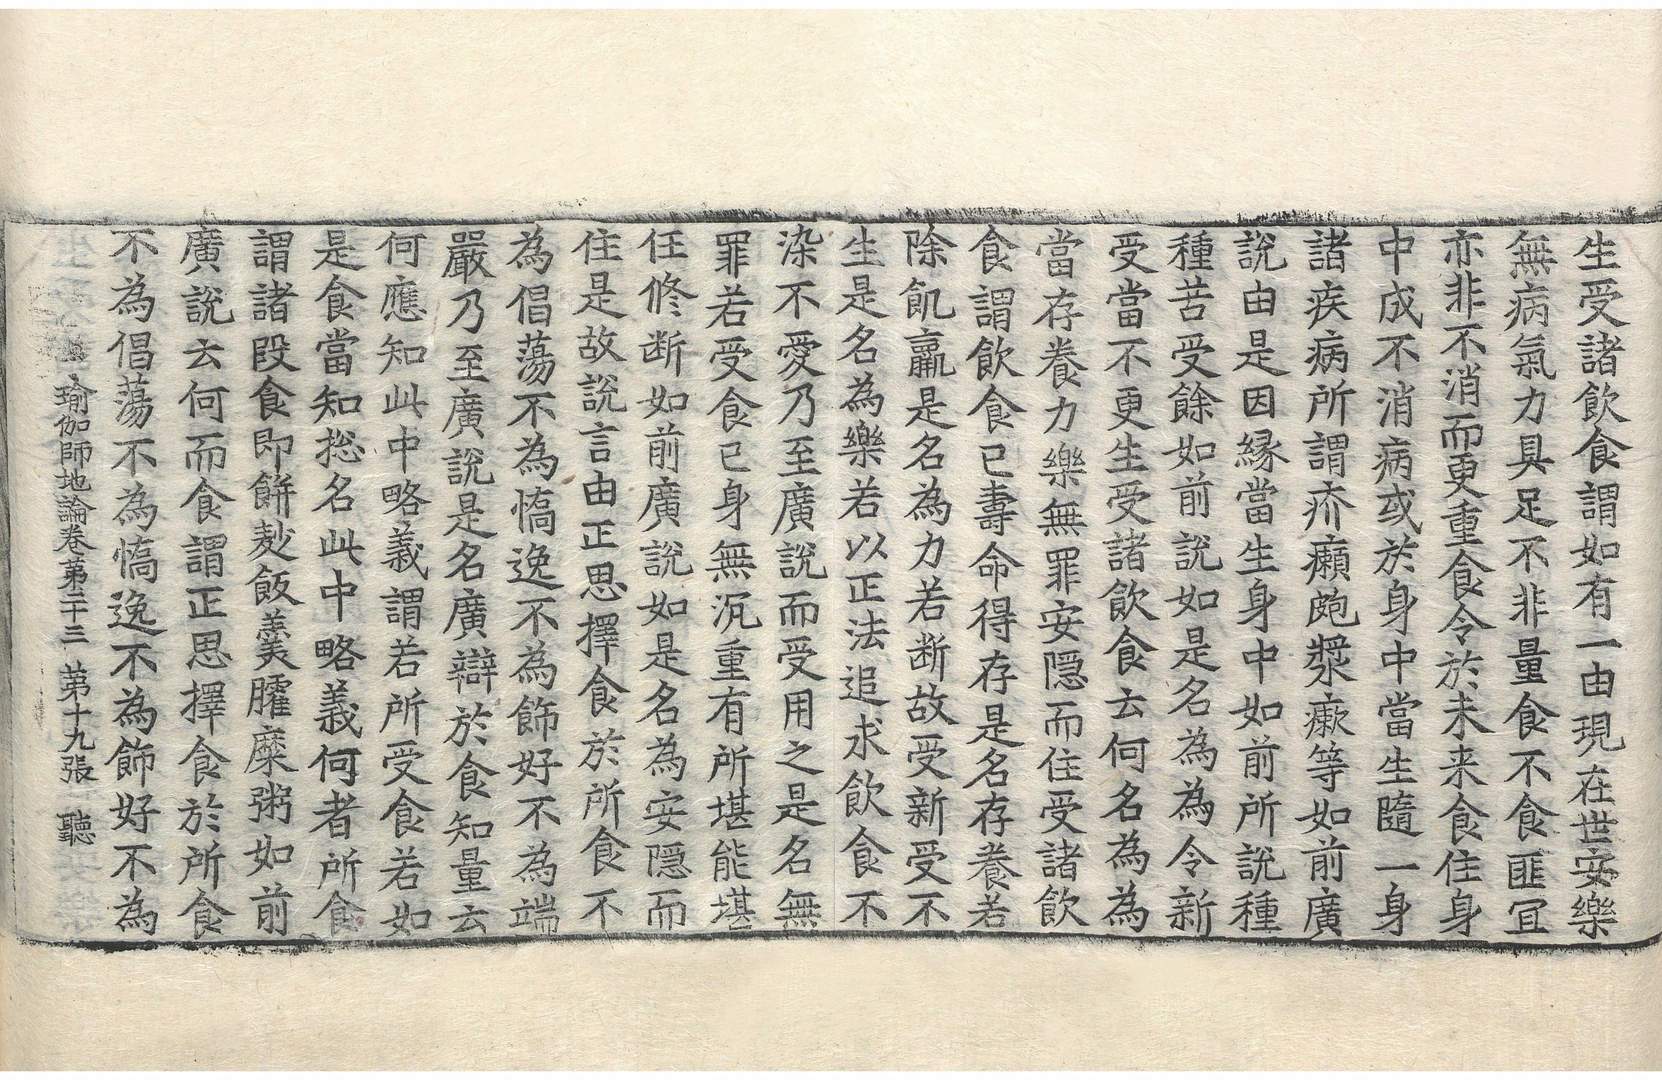 生受諸飲食謂如有一由現在世安樂
無病氣力具足不非量食不食匪冝
亦非不消而更重食令於未来食住身
中成不消病或於身中當生隨一身
諸疾病所謂疥癩皰漿瘷等如前廣
說由是因縁當生身中如前所說種
種苦受餘如前說如是名為為令新
受當不更生受諸飲食云何名為為
當存養力樂無罪安隱而住受諸飲
食謂飲食已壽命得存是名存養若
除飢羸是名為力若断故受新受不
生是名為樂若以正法追求飲食不
染不愛乃至廣說而受用之是名無
罪若受食已身無沉重有所堪能堪
任修断如前廣說如是名為安隱而
住是故說言由正思擇食於所食不
為倡蕩不為憍逸不為飾好不為端
嚴乃至廣說是名廣辯於食知量云
何應知此中略義謂若所受食若如
是食當知捴名此中略義何者所食
謂諸段食即餅麨飯羹臛糜粥如前
廣說云何而食謂正思擇食於所食
不為倡蕩不為憍逸不為飾好不為
瑜伽師地論卷第二十三 第十九張 聽